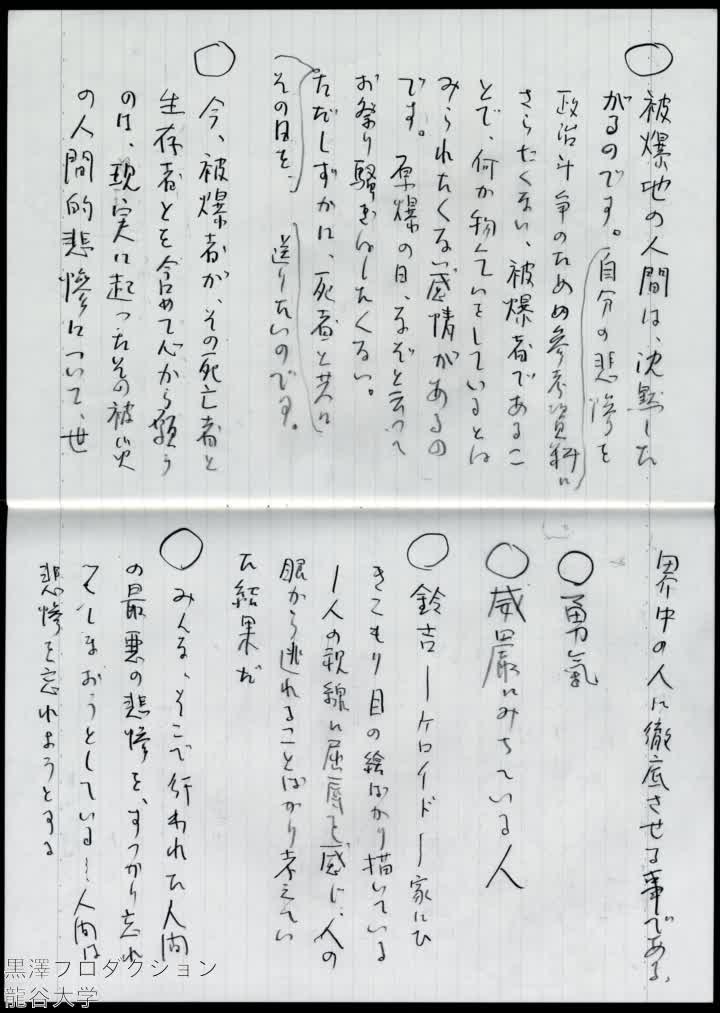 ○被爆地の人間は、沈黙した
がるのです。自分の悲惨を
政治斗争のための参考資料に
さらたくない、被爆者であるこ
とで、何か物欲しいをしているとは
みられたくない感情があるの
です。原爆の日、なぞと云って
お祭り騒ぎはしたくない。
ただしずかに、死者と共に
その日を、送りたいのです。
○今、被爆者が、その死亡者と
生存者とを含めて心から願う
のは、現実に起ったその被災
の人間的悲惨について、世
界中の人に徹底させる事である、
○勇氣
○威厳にみちている人
○鈴吉ーケロイドー家にひ
きこもり目の絵ばかり描いている
ー人の視線に屈辱を感じ、人の
眼から逃れることばかり考えてい
た結果だ
○みんな、そこで行われた人間
の最悪の悲惨を、すっかり忘れ
てしまおうとしているー人間は
悲惨を忘れようとする
黒澤プロダクション
龍谷大学